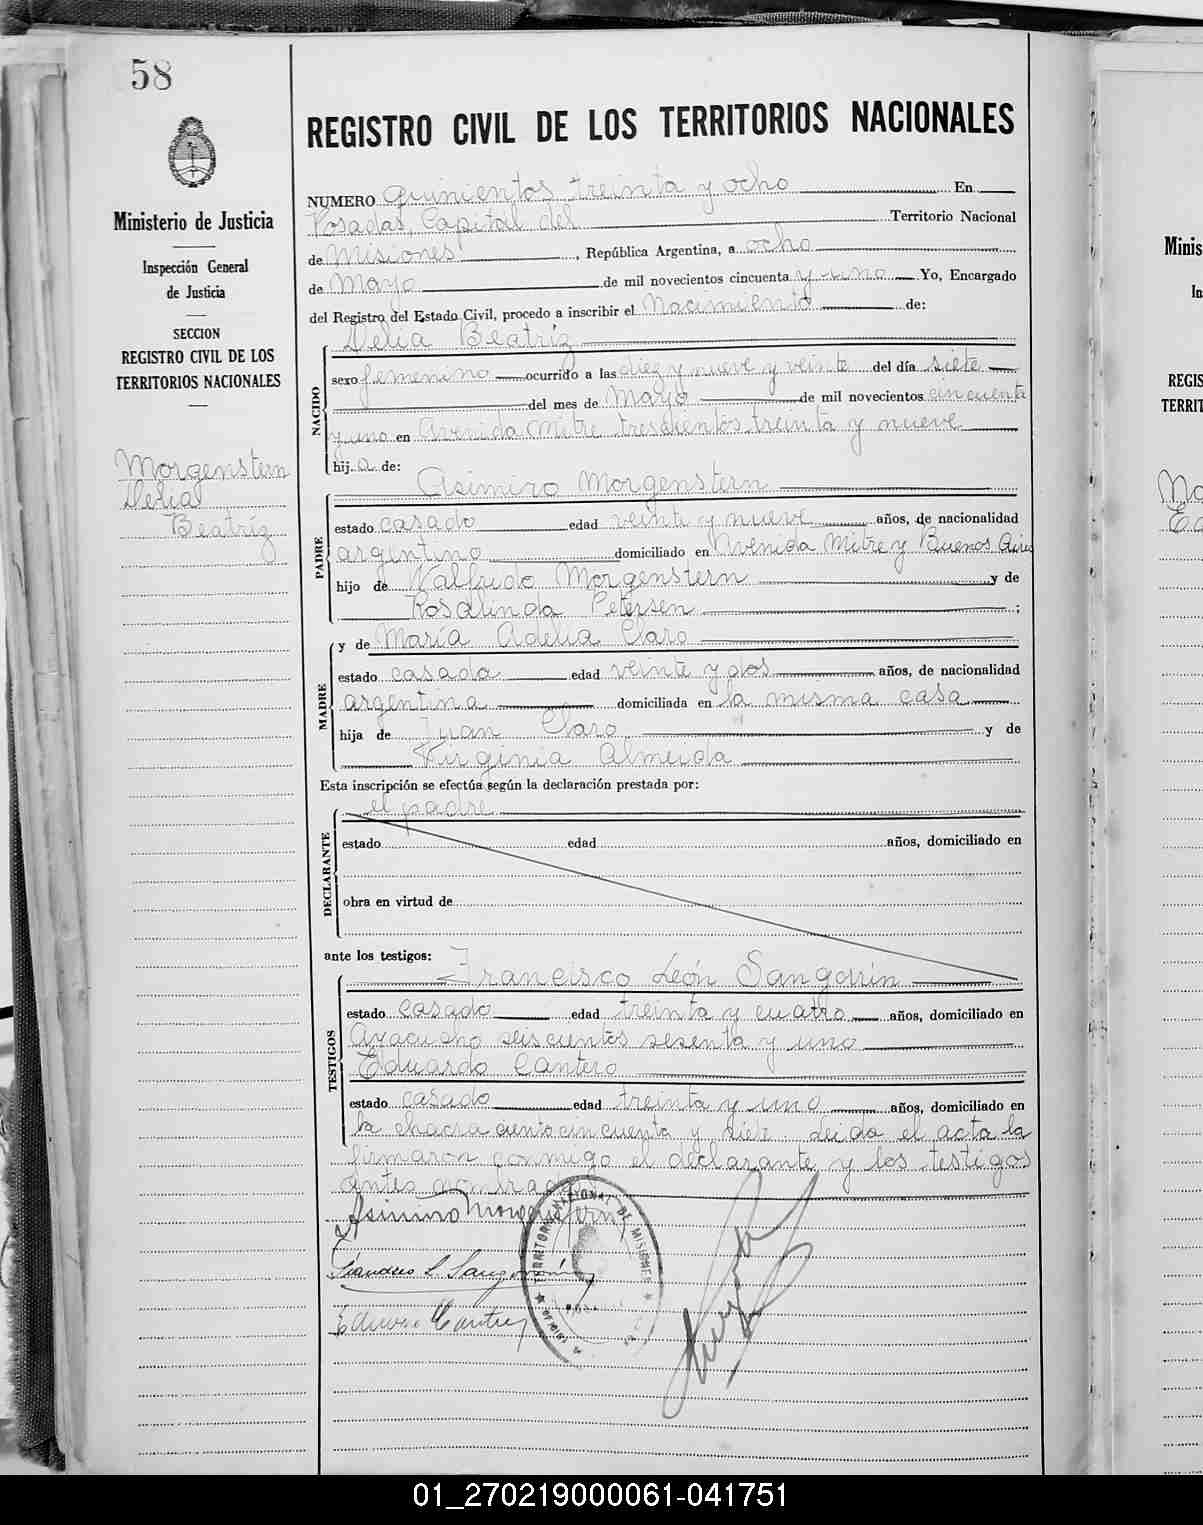 58
Ministerio de Justicia
Inspección General
de Justicia
SECCION
REGISTRO CIVIL DE LOS
TERRITORIOS NACIONALES
Morgenstern
Delia
Beatríz
REGISTRO CIVIL DE LOS TERRITORIOS NACIONALES
NUMERO quinientos treinta y ocho En
Posadas, Capital del Territorio Nacional
de Misiones, República Argentina, a ocho
de Mayo de mil novecientos cincuenta y uno Yo, Encargado
del Registro del Estado Civil, procedo a inscribir el Nacimiento de:
NACIDO
Delia Beatríz
sexo femenino ocurrido a las diez y nueve y veinte del día siete
del mes de Mayo de mil novecientos cincuenta
y uno en Avenida Mitre trescientos treinta y nueve
hija de:
PADRE
Asimiro Morgenstern
estado casado edad veinte y nueve años, de nacionalidad
argentino domiciliado en Avenida Mitre y Buenos Aires
hijo de Valfrido Morgenstern y de
Rosalinda Petersen;
MADRE
y de María Adelia Claro
estado casada edad veinte y dos años, de nacionalidad
argentina domiciliada en la misma casa
hija de Juan Claro y de
Virginia Almeida
Esta inscripción se efectúa según la declaración prestada por:
DECLARANTE
el padre
estado edad años, domiciliado en
obra en virtud de
ante los testigos:
TESTIGOS
Francisco León Sangorrin
estado casado edad treinta y cuatro años, domiciliado en
Ayacucho seiscientos sesenta y uno
Eduardo Cantero
estado casado edad treinta y uno años, domiciliado en
la chacra ciento cincuenta y siete Leida el acta la
firmaron conmigo el declarante y los testigos
antes nombrados
Asimiro Morgenstern
TERRITORIO NACIONAL DE MISIONES
Minis
In
REGIS
TERRIT
01_270219000061-041751